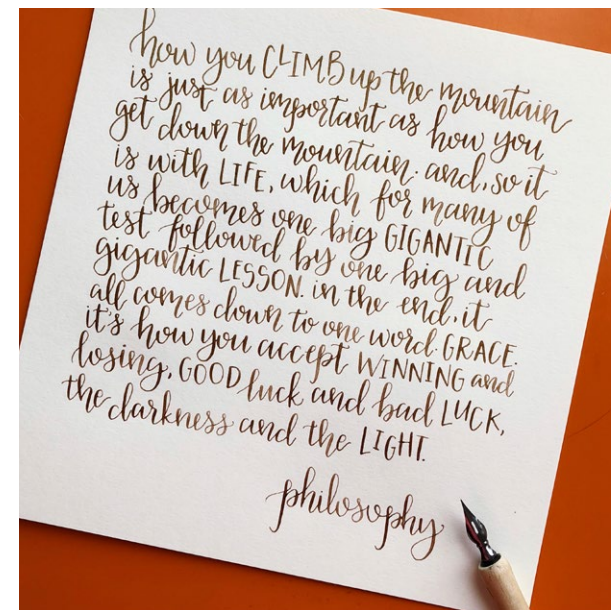 how you CLIMB up the mountain
is just as important as how you
get down the mountain. and, so it
is with LIFE, which for many of
us becomes one big GIGANTIC
test followed by one big and
gigantic LESSON. in the end, it
all comes down to one word. GRACE.
it's how you accept WINNING and
losing, GOOD luck and bad LUCK,
the darkness and the LIGHT.
philosophy